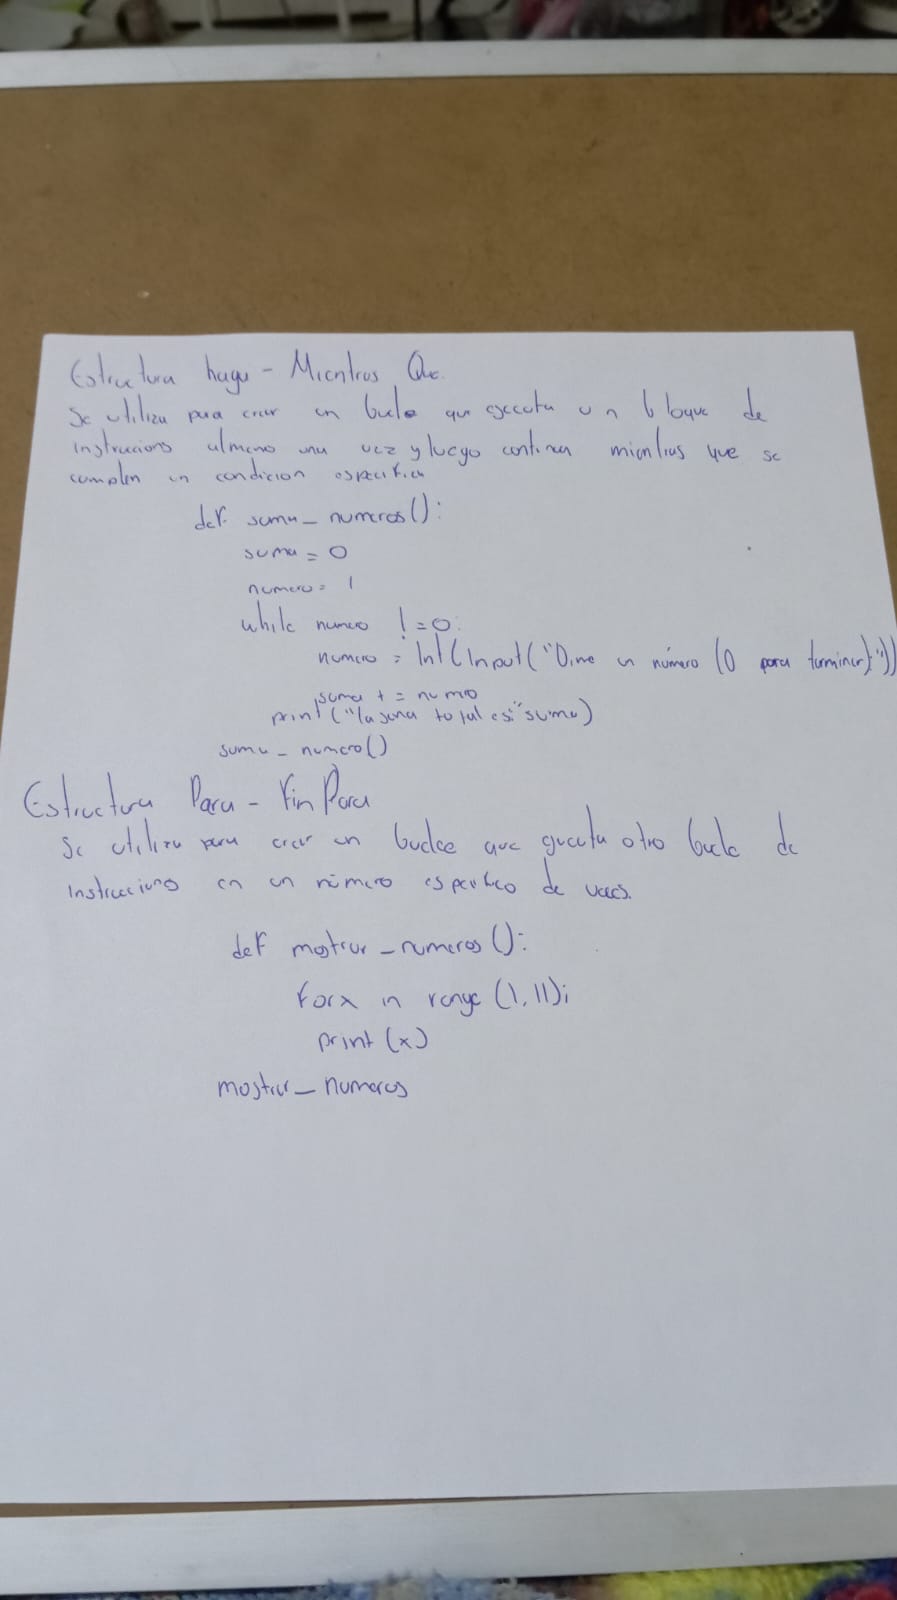 Estructura haga - Mientras Que.
Se utiliza para crear un bucle que ejecuta un bloque de
instruccions almeno una vez y luego continua mientras que se
cumplen un condicion especifica
def suma_numeros():
suma = 0
numero = 1
while numero != 0:
numero = Int(Input("Dime un número (0 para terminar)"))
suma += numero
print("la suma total es:" suma)
suma_numero()
Estructura Para - Fin Para
Se utiliza para crear un bucle que ejecuta otro bucle de
instrucciones en un número especifico de veces.
def mostrar_numeros():
for x in range (1, 11);
print (x)
mostrar_numeros